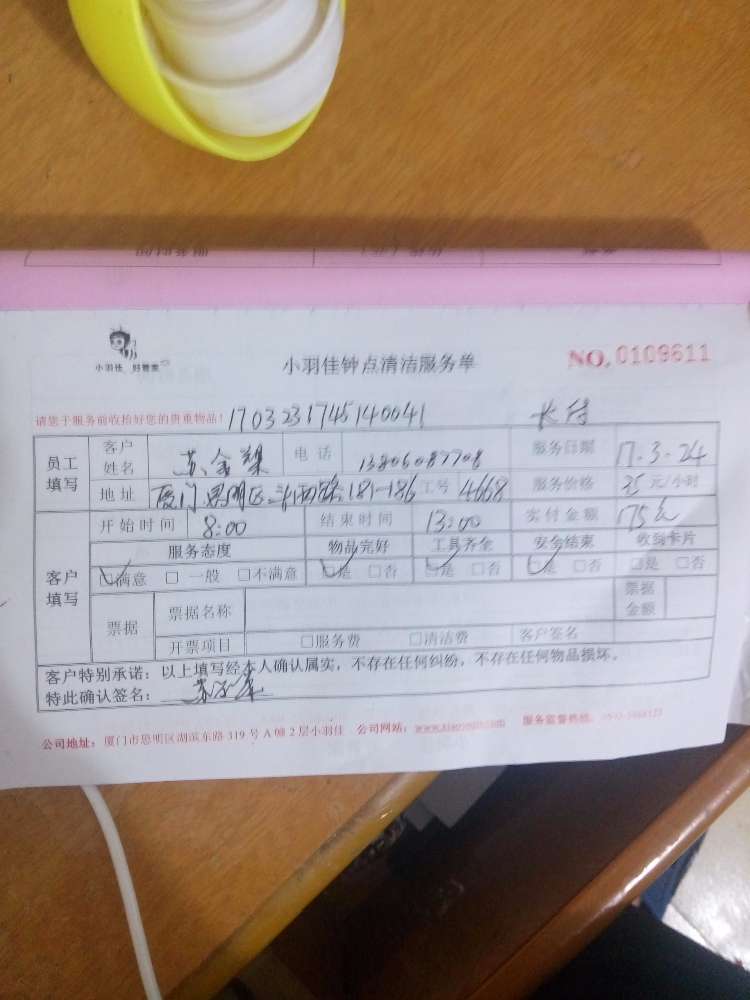 小羽佳 好管家
小羽佳钟点清洁服务单
NO. 0109611
请您于服务前收拾好您的贵重物品! 1703231745140041
员工填写 客户姓名 苏金 电话 服务日期 17.3.24
地址 厦门思明区 181-186 工号 4668 服务价格 35 元/小时
客户填写 开始时间 8:00 结束时间 13:00 实付金额 175元
服务态度 物品完好 工具齐全 安全结束 收到卡片
☑满意 □一般 □不满意 ☑是 □否 ☑是 □否 ☑是 □否 □是 □否
票据 票据名称 票据金额
开票项目 □服务费 □清洁费 客户签名
客户特别承诺:以上填写经本人确认属实,不存在任何纠纷,不存在任何物品损坏。
特此确认签名: 苏
公司地址:厦门市思明区湖滨东路 319 号 A 幢 2 层小羽佳 公司网站: 服务监督热线: